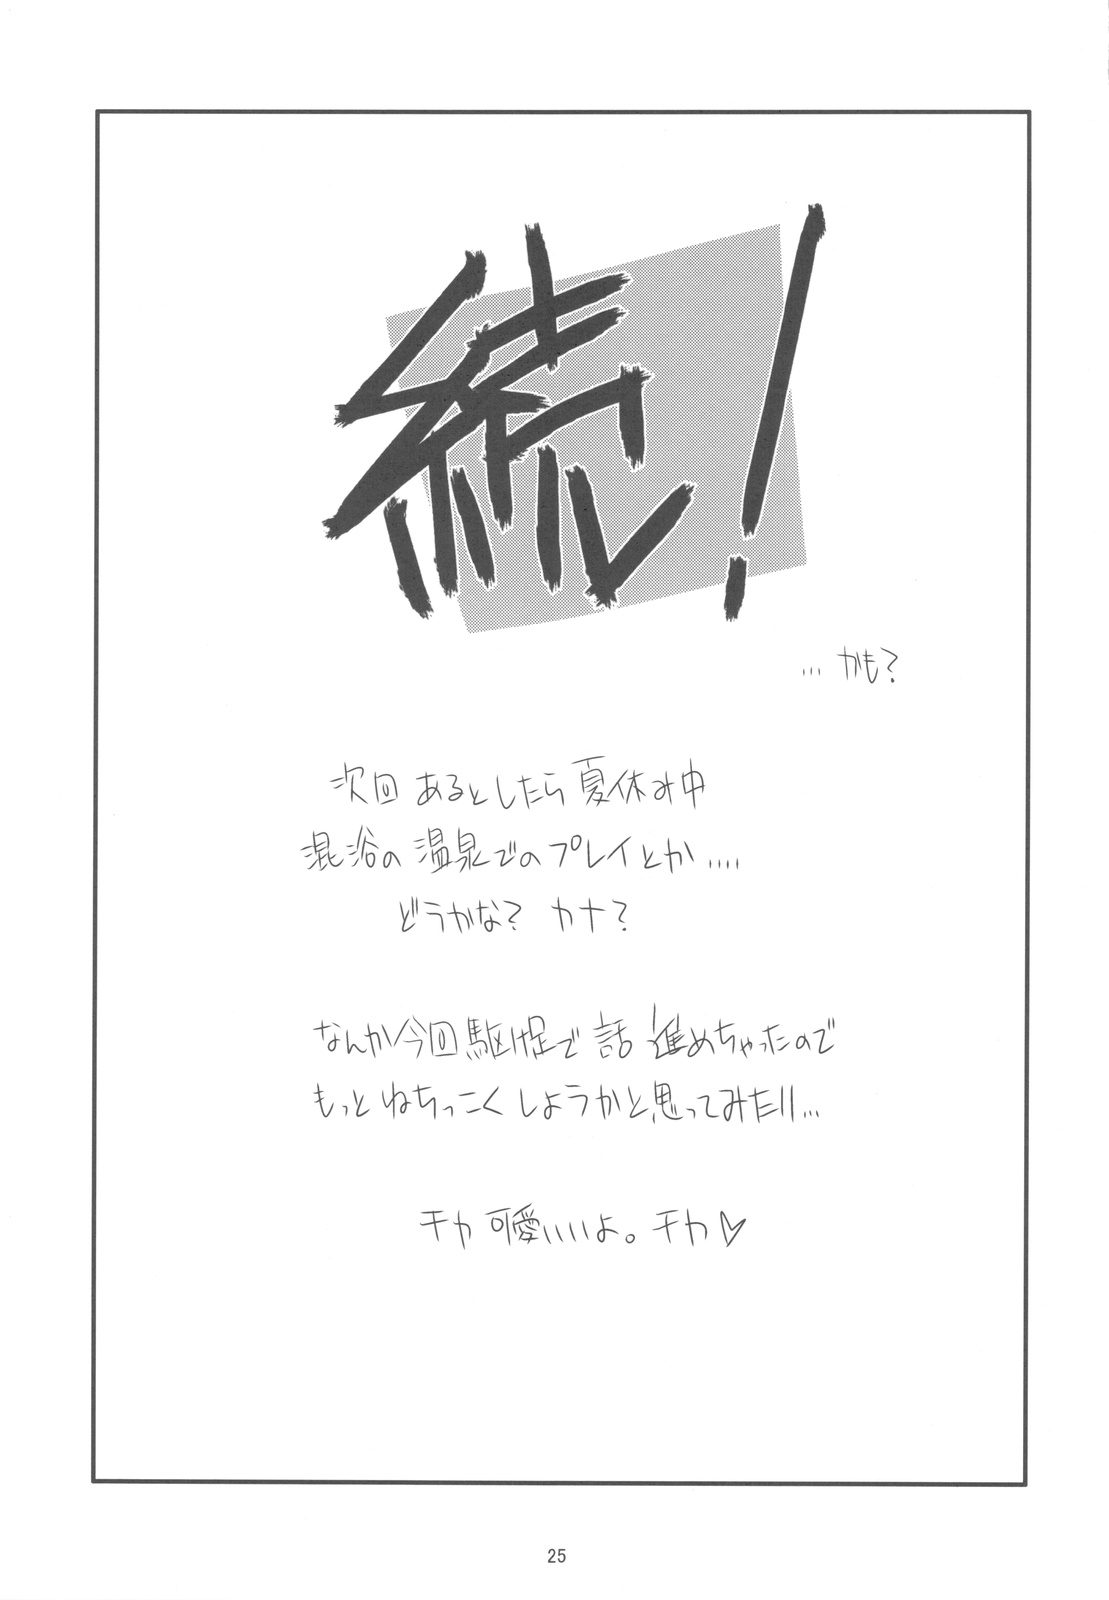 続!
…かも?
次回 あるとしたら夏休み中
混浴の温泉でのプレイとか....
どうかな? カナ?
なんか今回駆け足で話進めちゃったので
もっとねちっこくしようかと思ってみたり…
チカ可愛いいよ。チカ♡
25